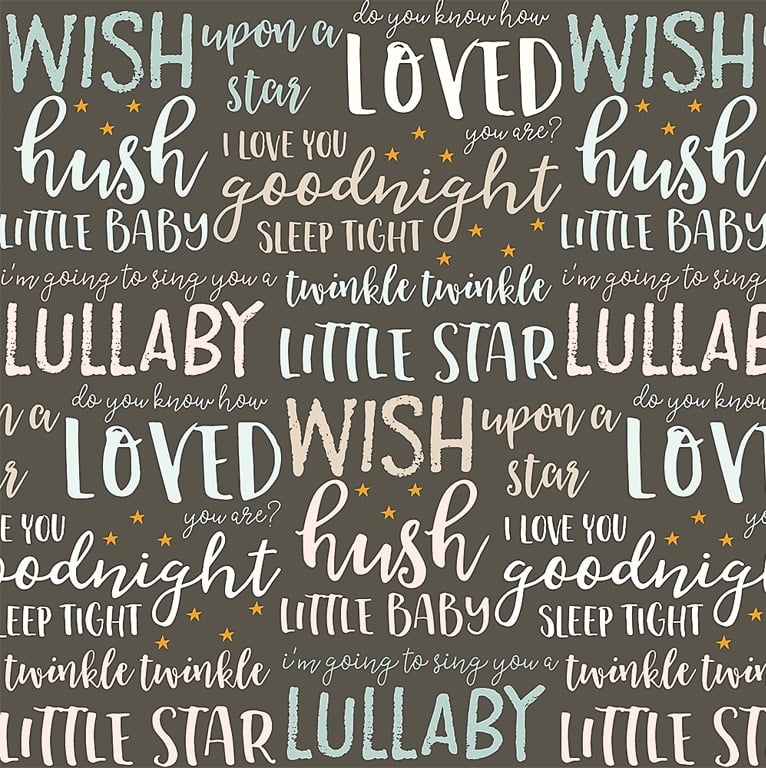 WISH upon a star do you know how LOVED you are? WISH
hush I LOVE YOU goodnight hush
LITTLE BABY SLEEP TIGHT LITTLE BABY
i'm going to sing you a twinkle twinkle i'm going to sing
LULLABY LITTLE STAR LULLAB
n a do you know how WISH upon a do you know
r LOVED star LOV
E YOU you are? hush I LOVE YOU yo
oodnight goodnig
LEEP TIGHT LITTLE BABY SLEEP TIGHT
twinkle twinkle i'm going to sing you a twinkle twin
LITTLE STAR LULLABY LITTLE ST